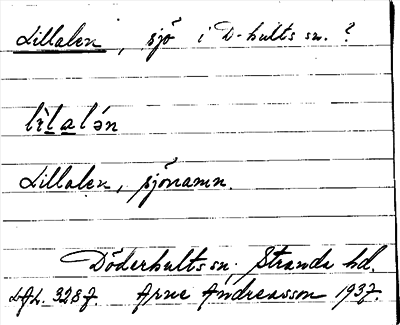 Lillalen, sjö i D-hults sn. ?
lìlalə́n
Lillalen, sjönamn.
Döderhults sn. Stranda hd.
LAL. 3287. Arne Andreasson 1937.